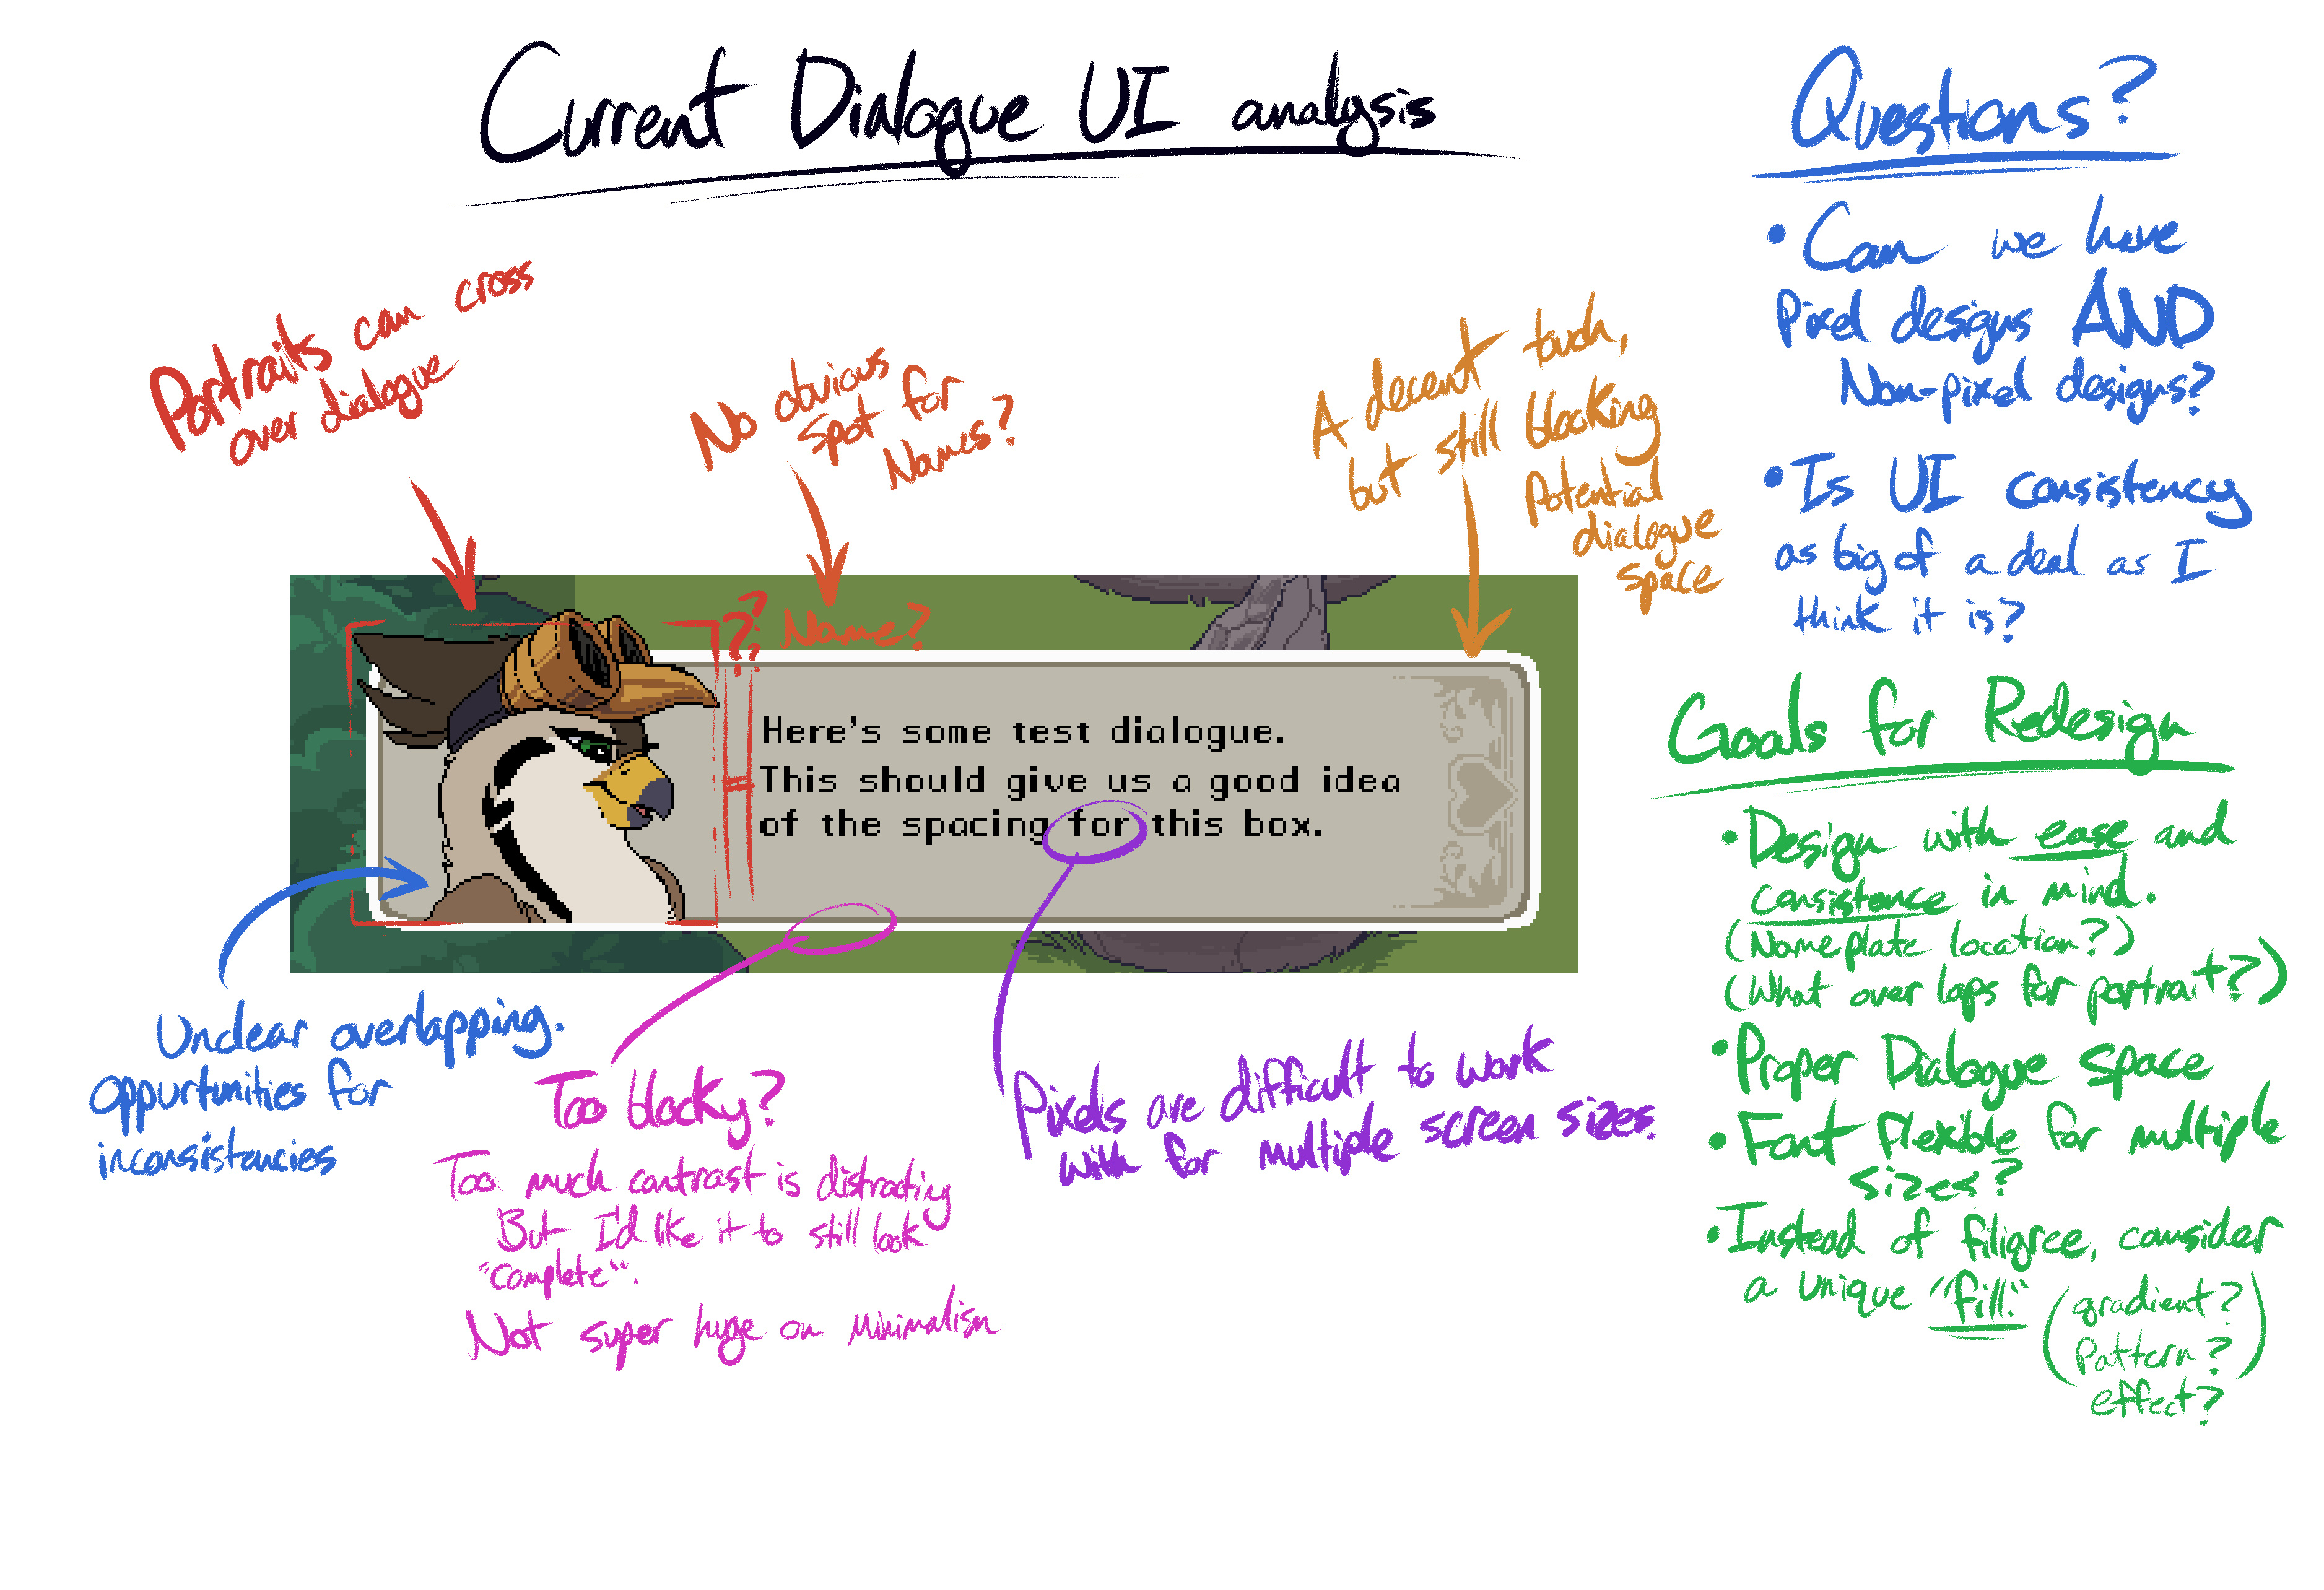 Current Dialogue UI analysis
Portraits can cross
over dialogue
No obvious
spot for
Names?
A decent touch,
but still blocking
Potential
dialogue
space
???
Name?
Here's some test dialogue.
This should give us a good idea
of the spacing for this box.
Unclear overlapping.
oppurtunities for
inconsistancies
Too blocky?
Too much contrast is distracting
But I'd like it to still look
"complete".
Not super huge on minimalism
Pixels are difficult to work
with for multiple screen sizes.
Questions?
• Can we have
Pixel designs AND
Non-pixel designs?
• Is UI consistency
as big of a deal as I
think it is?
Goals for Redesign
• Design with ease and
consistence in mind.
(Nameplate location?)
(What over laps for portrait?)
• Proper Dialogue space
• Font flexible for multiple
sizes?
• Instead of filigree, consider
a unique "fill."
(gradient?
Pattern?
effect?)